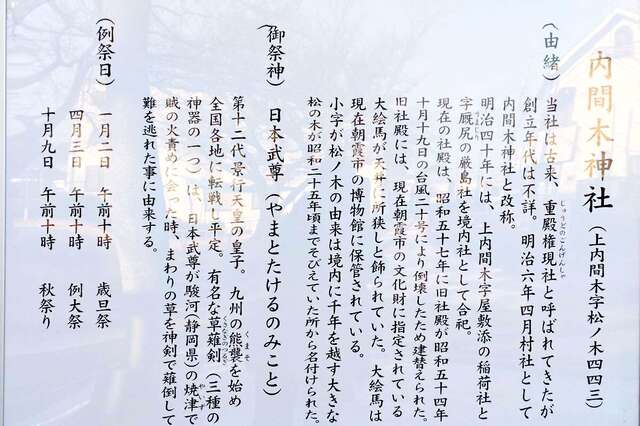 内間木神社(上内間木字松ノ木四四三)
(由緒)
当社は古来、重殿権現社と呼ばれてきたが
じゅうどのごんげんしゃ
創立年代は不詳。明治六年四月村社として
内間木神社と改称。
明治四十年には、上内間木字屋敷添の稲荷社と
字厩尻の厳島社を境内社として合祀。
現在の社殿は、昭和五十七年に旧社殿が昭和五十四年
十月十九日の台風二十号により倒壊したため建替えられた。
旧社殿には、現在朝霞市の文化財に指定されている
大絵馬が天井に所狭しと飾られていた。大絵馬は
現在朝霞市の博物館に保管されている。
小字が松ノ木の由来は境内に千年を越す大きな
松の木が昭和二十五年頃までそびえていた所から名付けられた。
(御祭神) 日本武尊(やまとたけるのみこと)
第十二代景行天皇の皇子。九州の熊襲を始め
くまそ
全国各地に転戦し平定。有名な草薙剣(三種の
くさなぎのつるぎ
神器の一つ)は、日本武尊が駿河(静岡県)の焼津で
やいず
賊の火責めに会った時、まわりの草を神剣で薙倒して
難を逃れた事に由来する。
(例祭日)
一月二日 午前十時 歳旦祭
四月三日 午前十時 例大祭
十月九日 午前十時 秋祭り